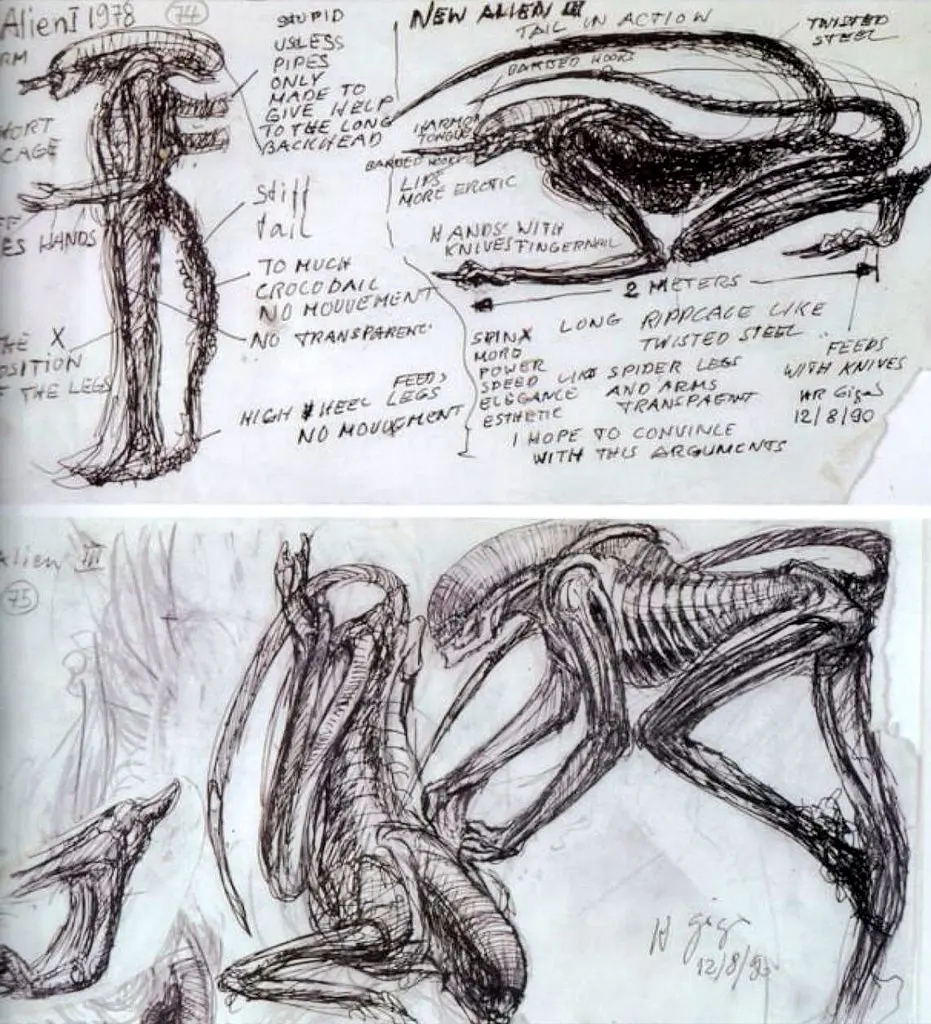 Alien I 1978
74
RM
STUPID
USLESS
PIPES
ONLY
MADE TO
GIVE HELP
TO THE LONG
BACKHEAD
HORT
CAGE
ES HANDS
Stiff
tail
TO MUCH
CROCODAIL
NO MOUVEMENT
NO TRANSPARENT
THE X
OSITION
F THE LEGS
FEEDS
HIGH HEEL LEGS
NO MOUVEMENT
NEW ALIEN III
TAIL IN ACTION
TWISTED
STEEL
BARBED HOOKS
HARMO
TONGUE
BARBED HOOKS
LIPS
MORE EROTIC
HANDS WITH
KNIVES FINGERNAIL
2 METERS
SPINX
MORO
POWER
SPEED
ELEGANCE
ESTHETIC
LONG RIPPCAGE LIKE
TWISTED STEEL
LIKE SPIDER LEGS
AND ARMS
TRANSPAENT
FEEDS
WITH KNIVES
HR Giger
12/8/90
I HOPE TO CONVINCE
WITH THIS ARGUMENTS
Alien III
75
H Giger
12/8/90